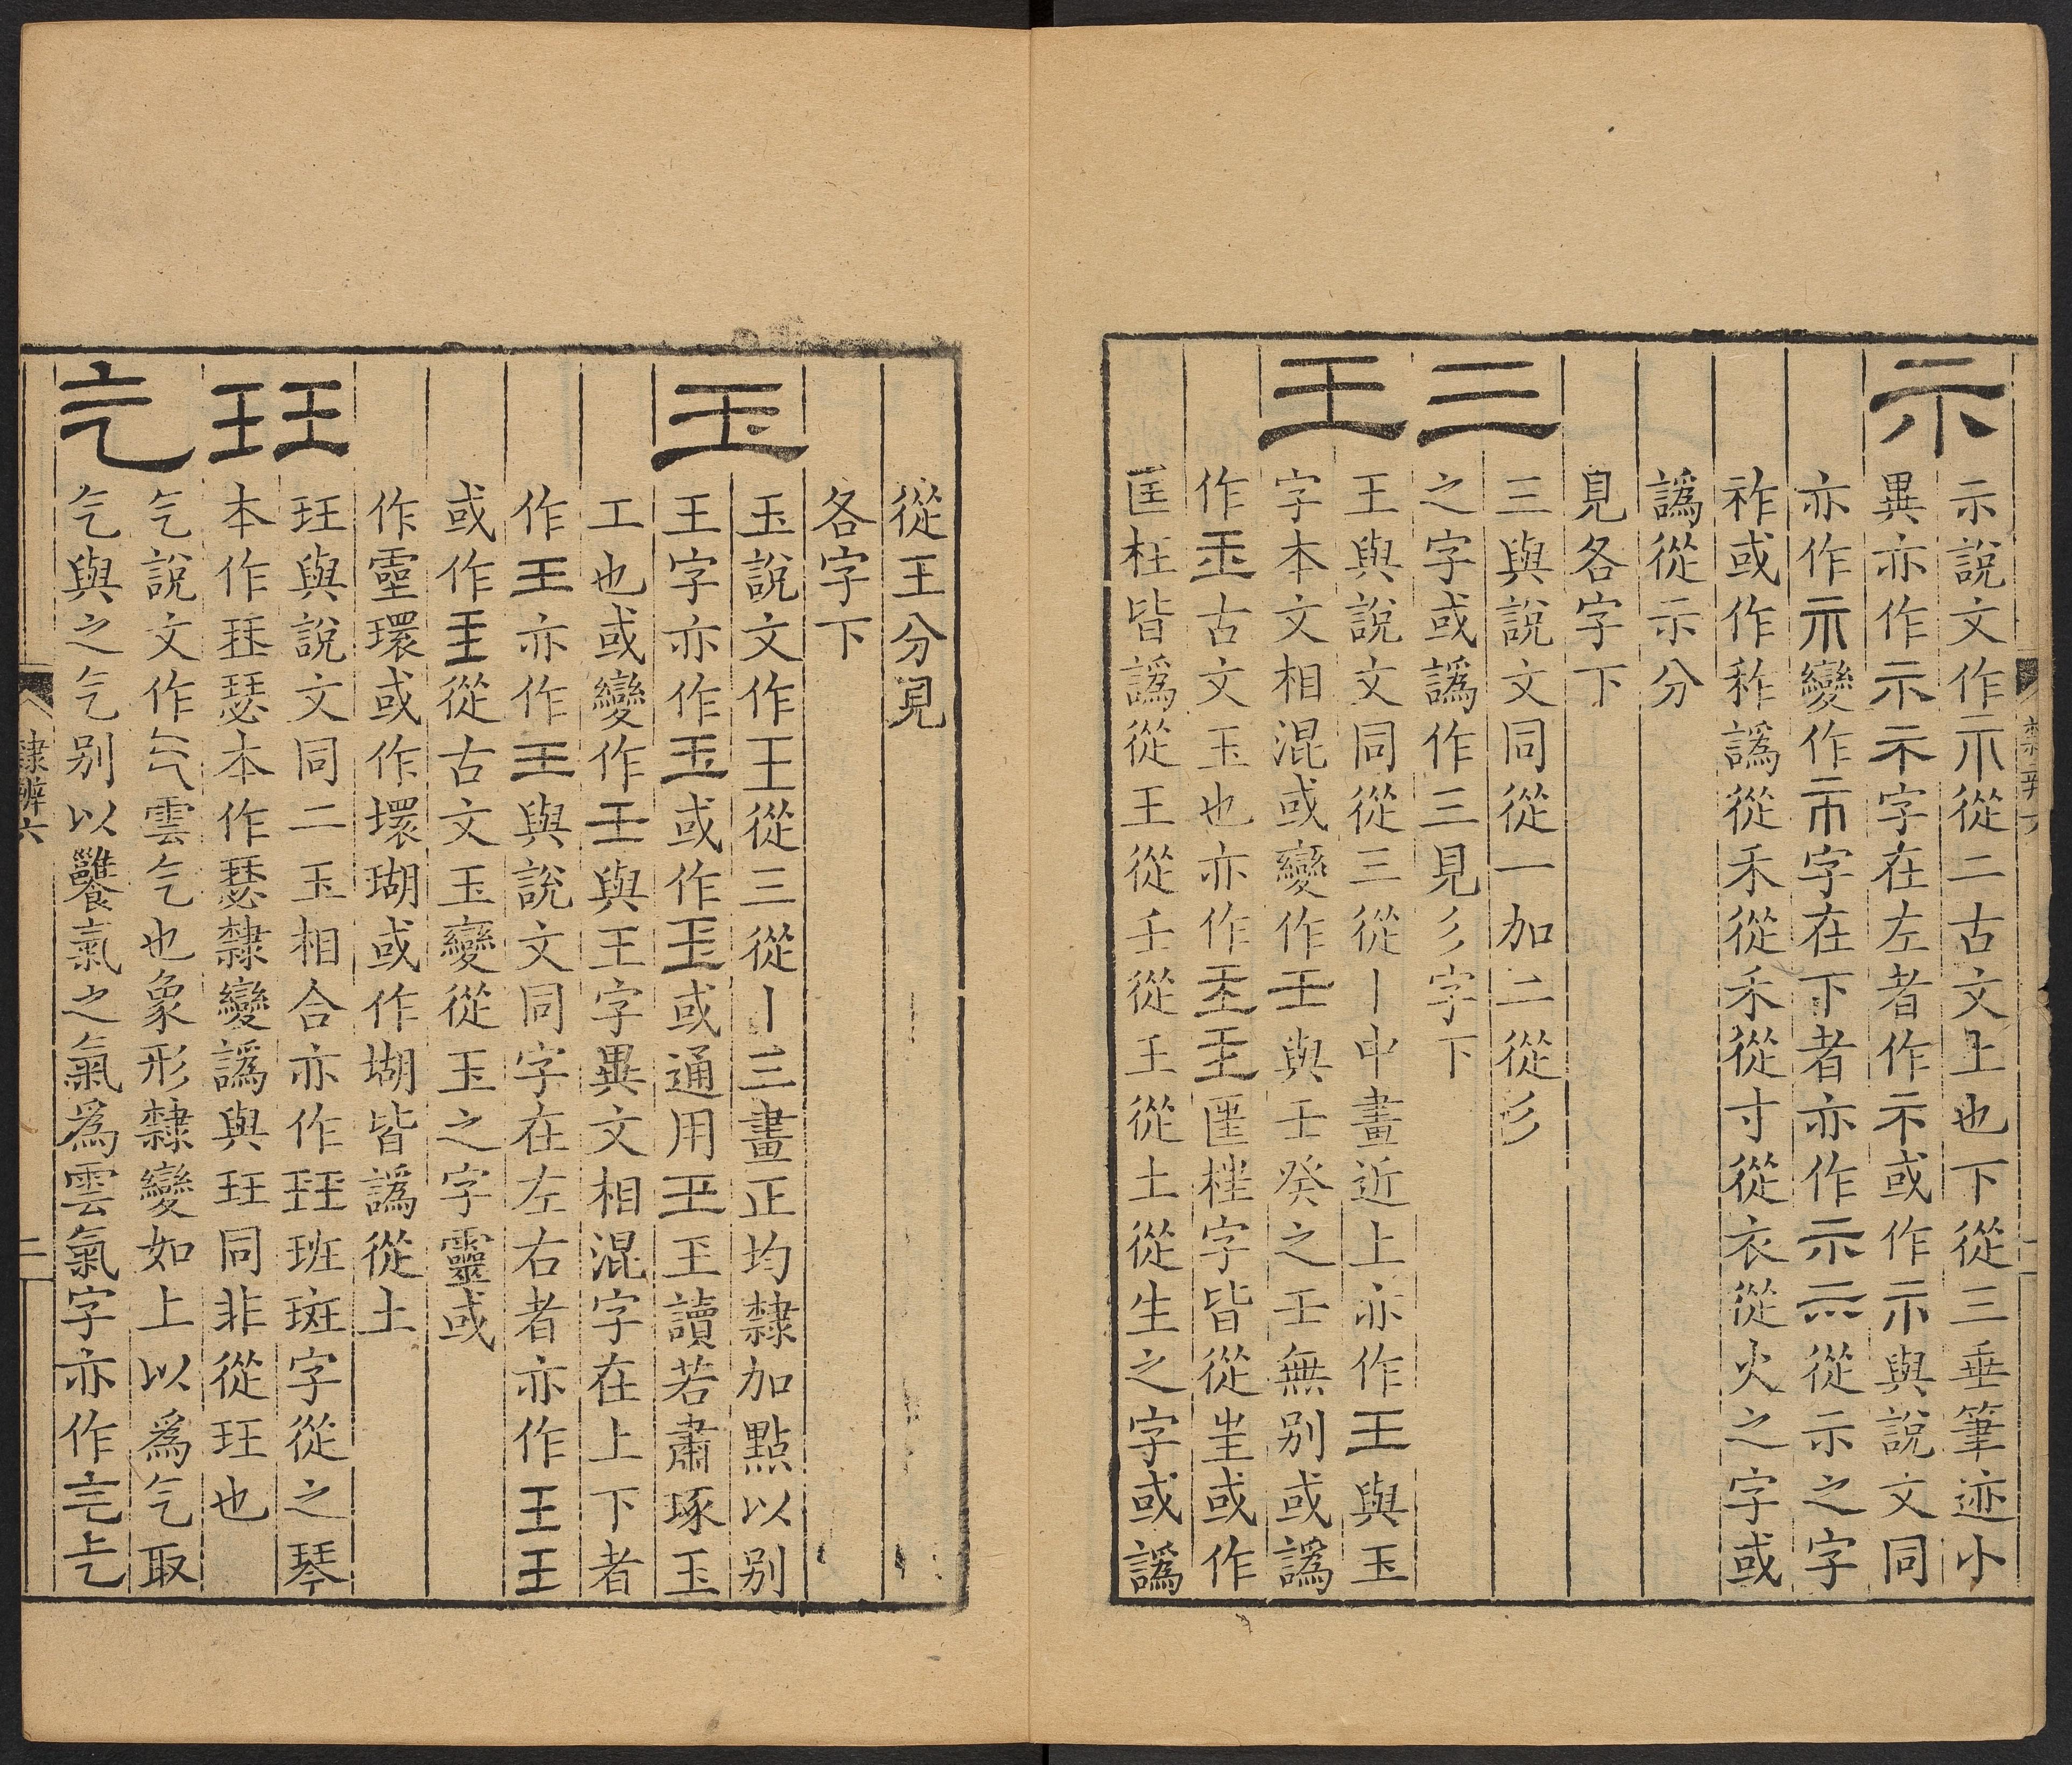 示
示說文作示從二古文上也下從三垂筆迹小
異亦作示示字在左者作示或作示與說文同
亦作示變作示字在下者亦作示示從示之字
祚或作秨譌從禾從禾從寸從衣從火之字或
譌從示分
見各字下
三
三與說文同從一加二從彡
之字或譌作三見彡字下
王
王與說文同從三從丨中畫近上亦作王與玉
字本文相混或變作壬與壬癸之壬無別或譌
作玉古文玉也亦作匩桂字皆從㞷或作
匡枉皆譌從王從壬從王從土從生之字或譌
從王分見
各字下
玉
玉說文作王從三從丨三畫正均隸加點以別
王字亦作玉或作玉或通用玊玊讀若肅琢玉
工也或變作壬與王字異文相混字在上下者
作王亦作王與說文同字在左右者亦作王王
或作從古文玉變從玉之字靈或
作𤫊環或作壞瑚或作堋皆譌從土
玨
玨與說文同二玉相合亦作玨班斑字從之琴
本作珡瑟本作瑟隸變譌與玨同非從玨也
气
乞說文作气雲乞也象形隸變如上以爲乞取
乞與之乞別以饔氣之氣爲雲氣字亦作
隸辨六
二